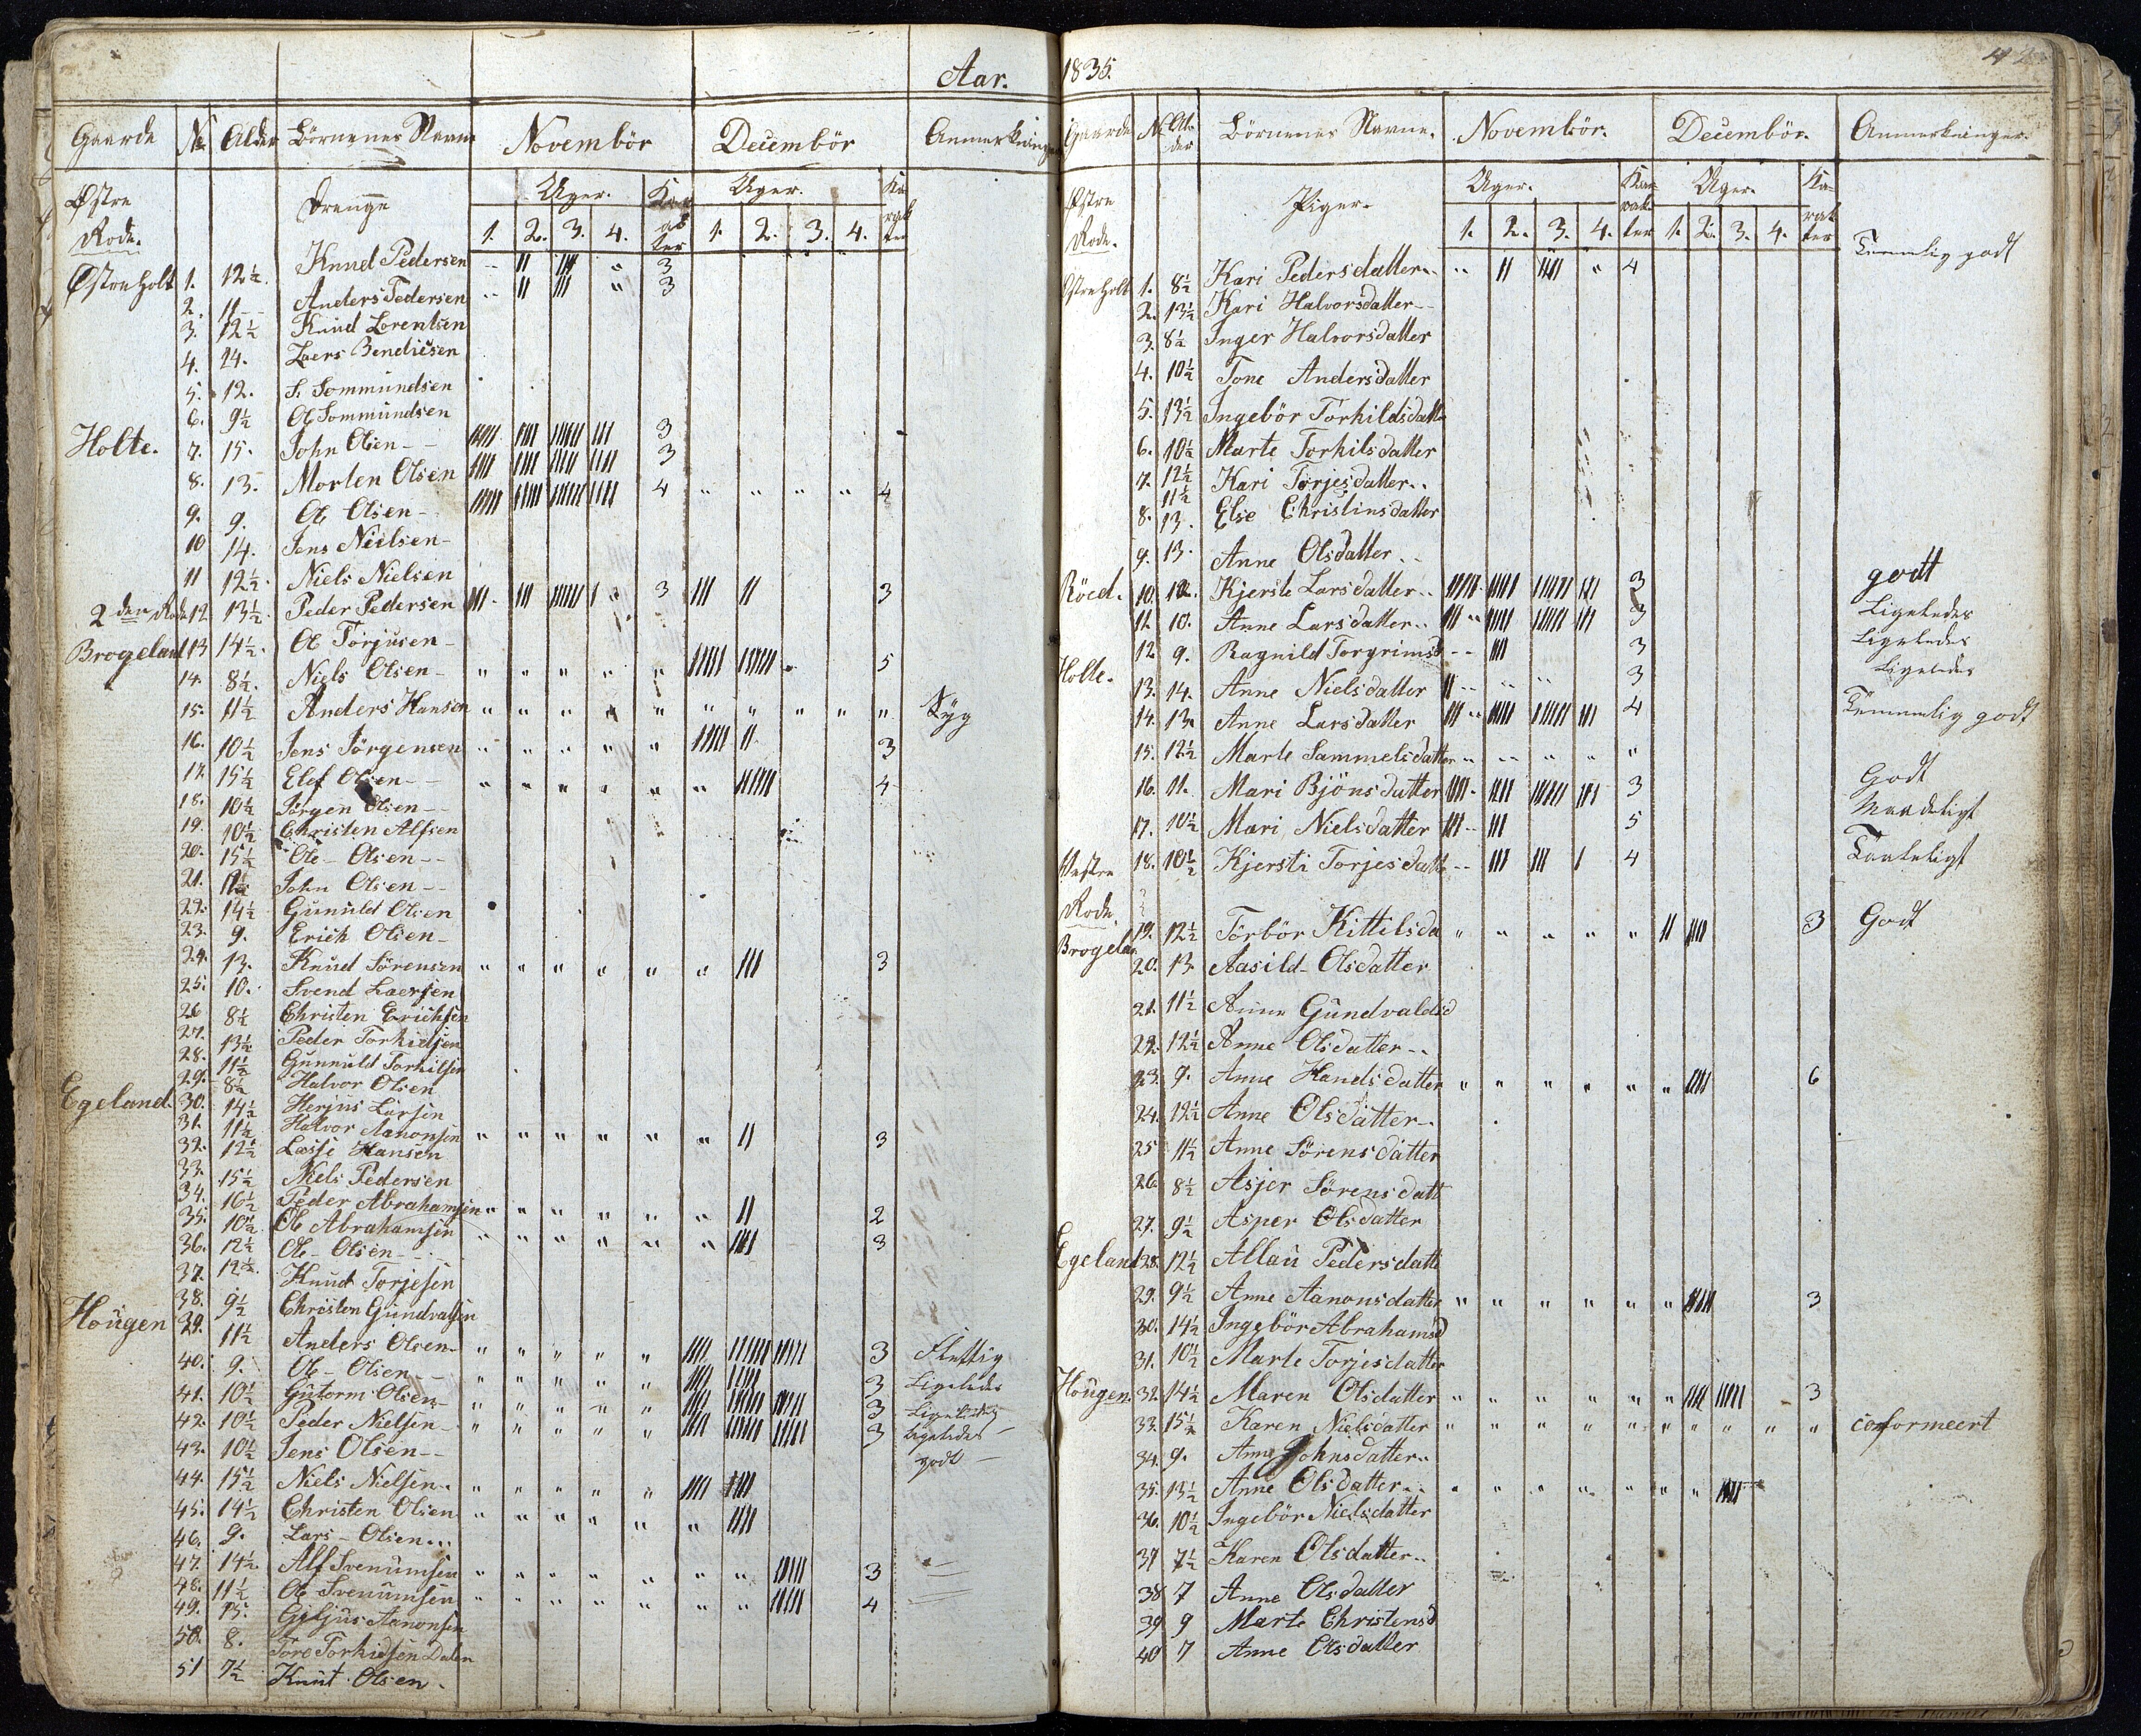 Aar.
Gaarde No Alder Börnenes Navne Novembör Decembör Anmerkninger
Østre Rode. Drenge Uger. Karakter Uger. Karakter
1. 2. 3. 4. 1. 2. 3. 4.
Østreholt 1. 12½. Knud Pedersen " II III " 3
2. 11 Anders Pedersen " II III " 3
3. 12½ Knud Lorentsen
4. 14. Laers Bendicsen
5. 12. S. Sommundsen
6. 9½ Ol Sommundsen
Holte. 7. 15. John Olsen 3
8. 13. Morten Olsen 3
9. 9. Ol Olsen 4 " " " " 4
10 14. Jens Nielsen
11 12½. Niels Nielsen
2den Rode 12 13½. Peder Pedersen 3 III II 3
Brogeland 13 14½. Ol Torjusen
14. 8½. Niels Olsen " " " " " 5
15. 11½ Anders Hansen " " " " " " " " " " Syg
16. 10½ Jens Jörgensen " " " " " 3
17. 15½ Elef Olsen " " " " " " 4
18. 10½ Jörgen Olsen
19. 10½ Christen Alfsen
20. 15½ Ole Olsen
21. John Olsen
22. 14½ Gunuld Olsen
23. 9. Erich Olsen
24. 13. Knud Sörensen " " " " " " III 3
25. 10. Svend Laersen
26 8½ Christen Erichsen
27. 13½ Peder Torkildsen
28. 11½ Gunnuld Torkilsen
29. 8½ Halvor Olsen
Egeland. 30. 14½ Herjus Larsen
31. 11½ Halvor Aanonsen " " " " " " II 3
32. 12½ Lasse Hansen
33. 15½ Niels Pedersen
34. 16½ Peder Abrahamsen " " " " " " II 2
35. 10½ Ol Abrahamsen " " " " " " 3
36. 12½ Ole Olsen
37. 12½. Knud Torjesen
38. 9½ Christen Gundvalsen
Hougen 39. 11½ Anders Olsen " " " " " 3 Flittig
40. 9. Ole Olsen " " " " " 3 Ligeledes
41. 10½ Gutorm Olsen " " " " " 3 Ligeledes
42. 10½ Peder Nielsen " " " " " 3 Ligeledes
43. 10½ Jens Olsen godt
44. 15½ Niels Nielsen " " " " " IIII IIII
45. 14½ Christen Olsen " " " " " " IIII
46. 9. Lars Olsen
47. 14½ Alf Svenumsen " " " " " " " 3
48. 11½ Ol Svenumsen " " " " " " " 4
49. 15. Aanonsen
50. 8. Tore Torkildsen Dalen
51 7½ Knut Olsen
1835. 42
Gaarde No Alder Börnenes Navne. Novembör. Decembör. Anmerkninger.
Østre Rode. Piger. Uger. Karakter Uger. Karakter
1. 2. 3. 4. 1. 2. 3. 4.
Østreholt 1. 8½ Kari Pedersdatter " II IIII " 4 Temmelig godt
2. 13½ Kari Halvorsdatter
3. 8½ Inger Halvorsdatter
4. 10½ Tone Andersdatter
5. 13½ Ingebör Torkildsdatte
6. 10½ Marte Torkilsdatter
7. 12½ Kari Torjesdatter
11½
8. 13. Else Christinsdatter
9. 13. Anne Olsdatter
Röed. 10. 12. Kjerste Larsdatter 3 godt
11 10. Anne Larsdatter 3 Ligeledes
12 9. Ragnild Torgrimsd III 3 Ligeledes
Holte. 13. 14. Anne Nielsdatter 3 Ligeledes
14. 13. Anne Larsdatter 4 Temmelig godt
15. 12½ Marte Sammelsdatter " " " " "
16. 11. Mari Bjönsdatter 3 Godt
17. 10½ Mari Nielsdatter III III 5 Maadeligt
Vestre Rode. 18. 10½ Kjersti Torjesdatt III III I 4 Taaleligt
Brogelan 19. 12½ Törbör Kittilsda " " " " " II IIII 3 Godt
20. 13 Aasild Olsdatter
21. 11½ Anne Gundvaldsd
22. 12½ Anne Olsdatter
23. 9. Anne Handsdatter " " " " " " IIII 6
24. 12½ Anne Olsdatter
25 11½ Anne Sörensdatter
26. 8½ Asjer Sörensdatt
27. 9½ Asper Olsdatter
Egeland 28. 12½ Allau Pedersdatte
29. 9½ Anne Aanonsdatter " " " " " " 3
30. 14½ Ingebör Abrahamsd
31. 10½ Marte Torjesdatter
Hougen. 32. 14½ Maren Olsdatter " " " " " " 3
33. 15½ Karen Nielsdatter " " " " " " " " " " conformeert
34. 9. Anne Johnsdatter
35. 13½ Anne Olsdatter " " " " " " "
36. 10½ Ingebör Nielsdatter
37 7½ Karen Olsdatter
38 7 Anne Olsdatter
39 9 Marte Christensd
40 7 Anne Olsdatter